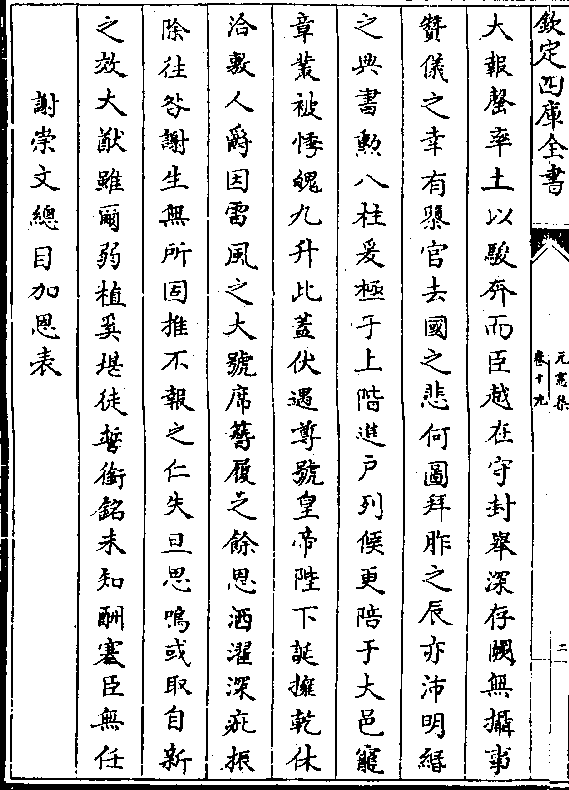 欽定四庫全書
元憲集
卷十九
二
大報罄率土以駿奔而臣越在守封舉深存闕無攝事
贊儀之幸有隳官去國之悲何圖拜胙之辰亦沛明緡
之典書勲八柱爰極于上階進戸列候更陪于大邑寵
章叢被悸魄九升此蓋伏遇尊號皇帝陛下誕擁乾休
洽敷人爵因雷風之大號席簪履之餘恩洒濯深疵振
除往咎謝生無所固推不報之仁失旦思鳴或取自新
之效大猷雖爾弱植奚堪徒誓銜銘未知酬塞臣無任
謝崇文總目加恩表